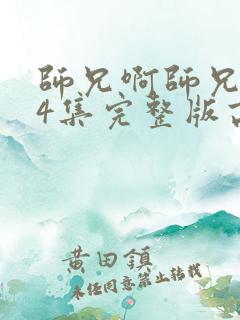 師兄啊師兄
4集完整版
黄田鎮
未經同意禁止轉載